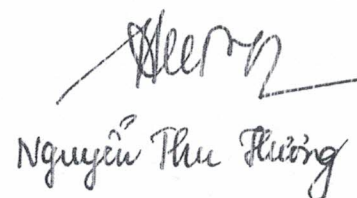 Nguyễn Thu Hương